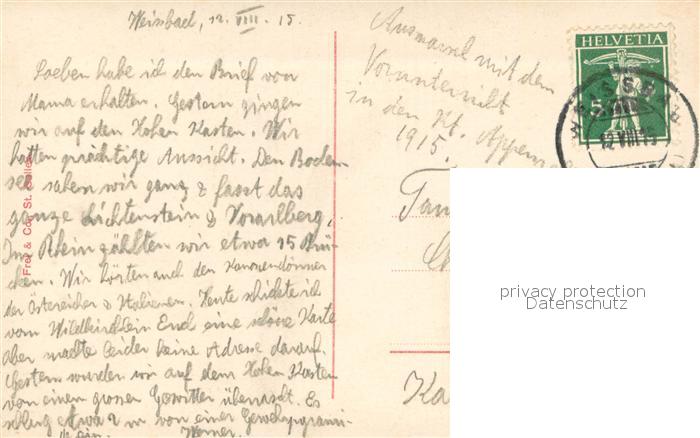 Weissbad, 12. VIII. 15.
Soeben habe ich den Brief von
Mama erhalten. Gestern gingen
wir auf den Hohen Kasten. Wir
hatten prächtige Aussicht. Den Boden
see sahen wir ganz & fasst das
ganze Lichtenstein & Vorarlberg.
Im Rhein zählten wir etwa 15 Brü-
cken. Wir hörten auch den Kanonendonner
der Östereicher & Italiener. Heute schickte ich
vom Wildkirchlein Euch eine schöne Karte
aber machte leider keine Adresse darauf.
Gestern wurden wir auf dem Hohen Kasten
von einem grossen Gewitter überrascht. Es
schlug etwa 2 m von einer
ein. Werner.
Frey & Co., St. Gallen
Ausmarsch mit dem
Vorunterricht
in den Kt. Appenz
1915.
HELVETIA
5
WEISSBAD
12 VIII 15
Fam
Ka
privacy protection
Datenschutz